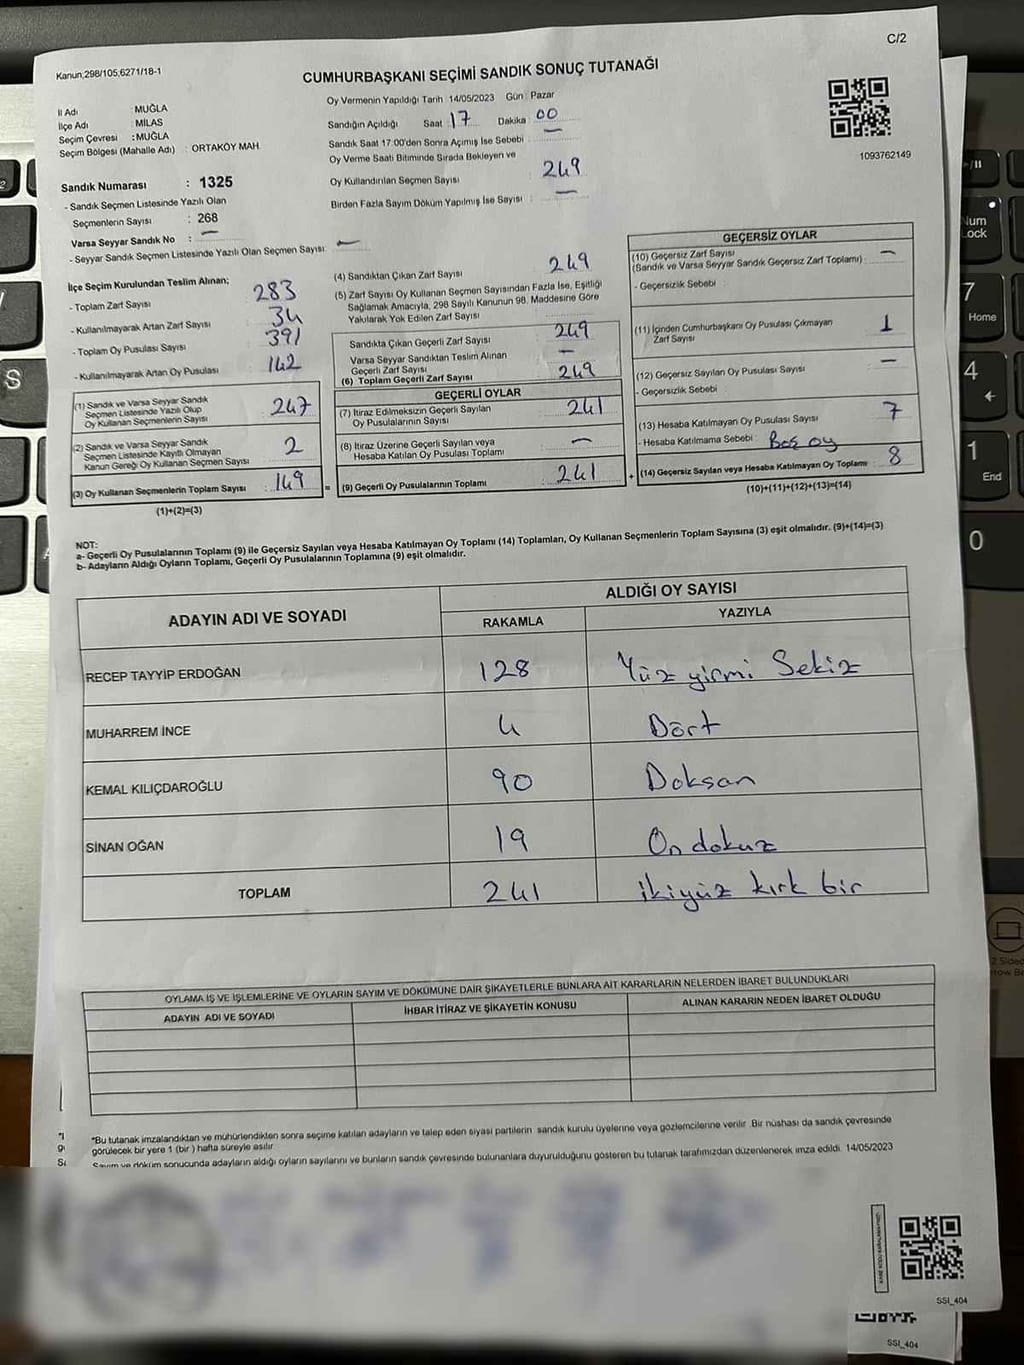 C/2
Kanun;298/105,6271/18-1
CUMHURBAŞKANI SEÇİMİ SANDIK SONUÇ TUTANAĞI
İl Adı : MUĞLA
İlçe Adı : MİLAS
Seçim Çevresi : MUĞLA
Seçim Bölgesi (Mahalle Adı) : ORTAKÖY MAH
Sandık Numarası : 1325
- Sandık Seçmen Listesinde Yazılı Olan
Seçmenlerin Sayısı : 268
Varsa Seyyar Sandık No : —
- Seyyar Sandık Seçmen Listesinde Yazılı Olan Seçmen Sayısı : —
Oy Vermenin Yapıldığı Tarih : 14/05/2023 Gün : Pazar
Sandığın Açıldığı Saat 17 Dakika 00
Sandık Saat 17:00'den Sonra Açımış İse Sebebi : —
Oy Verme Saati Bitiminde Sırada Bekleyen ve
Oy Kullandırılan Seçmen Sayısı 249
Birden Fazla Sayım Döküm Yapılmış İse Sayısı : —
1093762149
İlçe Seçim Kurulundan Teslim Alınan;
- Toplam Zarf Sayısı 283
- Kullanılmayarak Artan Zarf Sayısı 34
- Toplam Oy Pusulası Sayısı 391
- Kullanılmayarak Artan Oy Pusulası 142
(1) Sandık ve Varsa Seyyar Sandık
Seçmen Listesinde Yazılı Olup
Oy Kullanan Seçmenlerin Sayısı 247
(2) Sandık ve Varsa Seyyar Sandık
Seçmen Listesinde Kayıtlı Olmayan
Kanun Gereği Oy Kullanan Seçmen Sayısı 2
(3) Oy Kullanan Seçmenlerin Toplam Sayısı 149
(1)+(2)=(3)
(4) Sandıktan Çıkan Zarf Sayısı 249
(5) Zarf Sayısı Oy Kullanan Seçmen Sayısından Fazla İse, Eşitliği
Sağlamak Amacıyla, 298 Sayılı Kanunun 98. Maddesine Göre
Yakılarak Yok Edilen Zarf Sayısı
Sandıkta Çıkan Geçerli Zarf Sayısı 249
Varsa Seyyar Sandıktan Teslim Alınan
Geçerli Zarf Sayısı —
(6) Toplam Geçerli Zarf Sayısı 249
GEÇERLİ OYLAR
(7) İtiraz Edilmeksizin Geçerli Sayılan
Oy Pusulalarının Sayısı 241
(8) İtiraz Üzerine Geçerli Sayılan veya
Hesaba Katılan Oy Pusulası Toplamı —
= (9) Geçerli Oy Pusulalarının Toplamı 241 +
GEÇERSİZ OYLAR
(10) Geçersiz Zarf Sayısı
(Sandık ve Varsa Seyyar Sandık Geçersiz Zarf Toplamı) : —
- Geçersizlik Sebebi
(11) İçinden Cumhurbaşkanı Oy Pusulası Çıkmayan
Zarf Sayısı 1
(12) Geçersiz Sayılan Oy Pusulası Sayısı —
- Geçersizlik Sebebi
(13) Hesaba Katılmayan Oy Pusulası Sayısı 7
- Hesaba Katılmama Sebebi : Boş oy
(14) Geçersiz Sayılan veya Hesaba Katılmayan Oy Toplamı 8
(10)+(11)+(12)+(13)=(14)
NOT:
a- Geçerli Oy Pusulalarının Toplamı (9) ile Geçersiz Sayılan veya Hesaba Katılmayan Oy Toplamı (14) Toplamları, Oy Kullanan Seçmenlerin Toplam Sayısına (3) eşit olmalıdır. (9)+(14)=(3)
b- Adayların Aldığı Oyların Toplamı, Geçerli Oy Pusulalarının Toplamına (9) eşit olmalıdır.
ADAYIN ADI VE SOYADI
ALDIĞI OY SAYISI
RAKAMLA YAZIYLA
RECEP TAYYİP ERDOĞAN 128 Yüz yirmi Sekiz
MUHARREM İNCE 4 Dört
KEMAL KILIÇDAROĞLU 90 Doksan
SİNAN OĞAN 19 On dokuz
TOPLAM 241 ikiyüz kırk bir
OYLAMA İŞ VE İŞLEMLERİNE VE OYLARIN SAYIM VE DÖKÜMÜNE DAİR ŞİKAYETLERLE BUNLARA AİT KARARLARIN NELERDEN İBARET BULUNDUKLARI
ADAYIN ADI VE SOYADI İHBAR İTİRAZ VE ŞİKAYETİN KONUSU ALINAN KARARIN NEDEN İBARET OLDUĞU
*Bu tutanak imzalandıktan ve mühürlendikten sonra seçime katılan adayların ve talep eden siyasi partilerin sandık kurulu üyelerine veya gözlemcilerine verilir. Bir nüshası da sandık çevresinde
görülecek bir yere 1 (bir) hafta süreyle asılır.
Sayım ve döküm sonucunda adayların aldığı oyların sayılarını ve bunların sandık çevresinde bulunanlara duyurulduğunu gösteren bu tutanak tarafımızdan düzenlenerek imza edildi. 14/05/2023
SSI_404
SSI_404
S
Num
Lock
7
Home
4
1
End
0